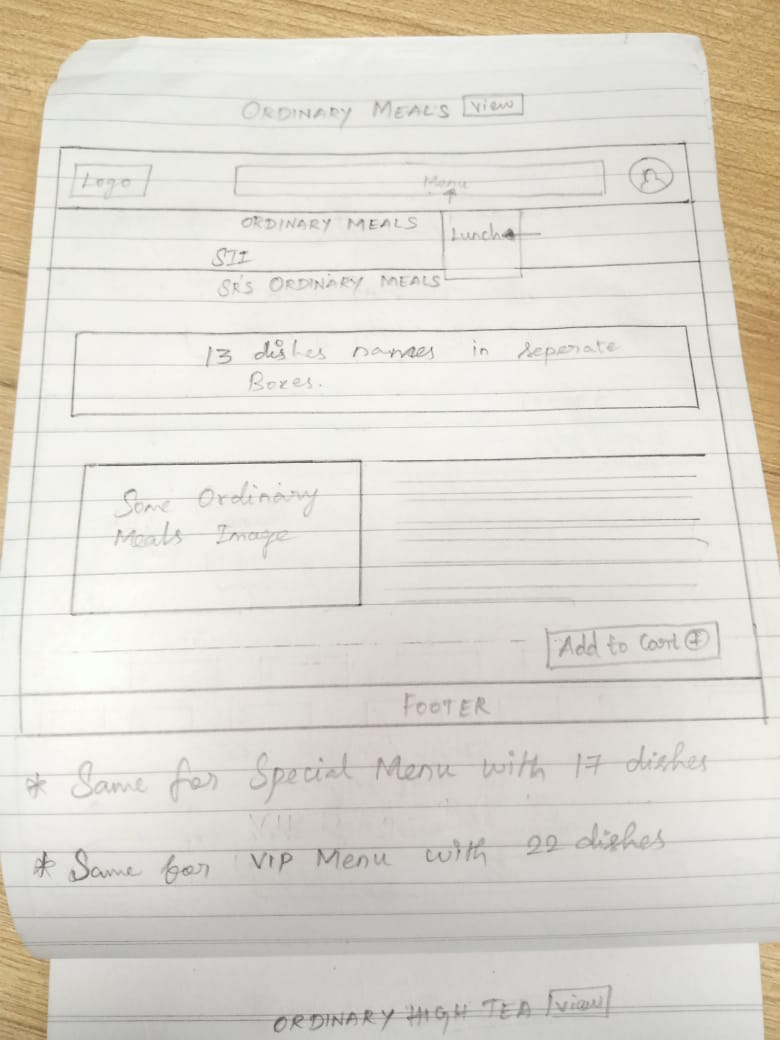 ORDINARY MEALS View
Logo
Menu
ORDINARY MEALS
Lunch
SR'S ORDINARY MEALS
13 dishes names in seperate
Boxes.
Some Ordinary
Meals Image
Add to Cart +
FOOTER
* Same for Special Menu with 17 dishes
* Same for VIP Menu with 22 dishes
ORDINARY HIGH TEA view